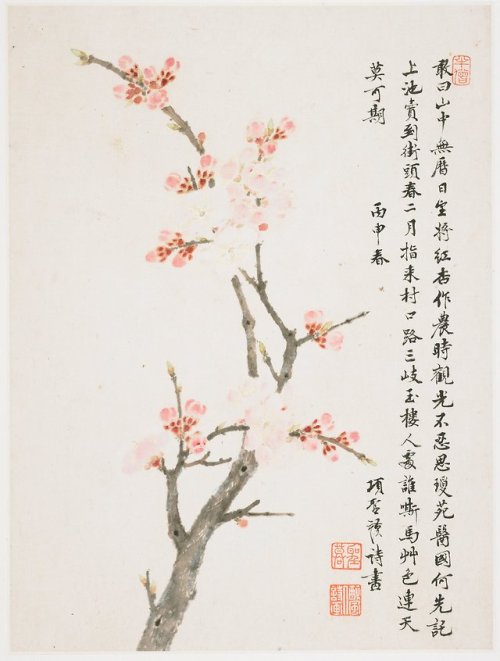 敢曰山中無曆日將紅杏作農時觀光不惡思瓊苑醫國何先
上池賣到街頭春二月指來村口路三岐玉樓人誰嘶馬艸色連天
莫可期
丙申春
項聖謨詩書